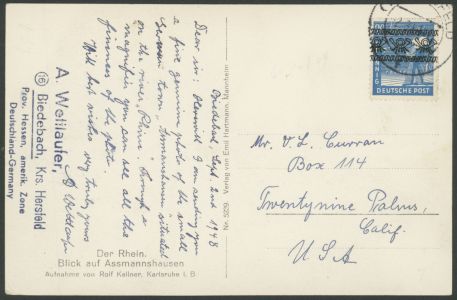 Biedebach, Sept. 2nd 1948
Dear sir: Herewith I am sending you
a fine genuine photo of the small
German town „Assmannshausen situated
on the river „Rhine". Through a
magnifier you can see all the
fineness of the photo.
With best wishes very truly yours
A. Wettlaufer
A. Wettlaufer,
(16) Biedebach, Krs. Hersfeld
Prov. Hessen, amerik. Zone
Deutschland-Germany
Der Rhein.
Blick auf Assmannshausen
Aufnahme von Rolf Kellner, Karlsruhe i. B.
Verlag von Emil Hartmann, Mannheim
DEUTSCHE POST
Mr. V. L. Curran
Box 114
Twentynine Palms,
Calif.
USA